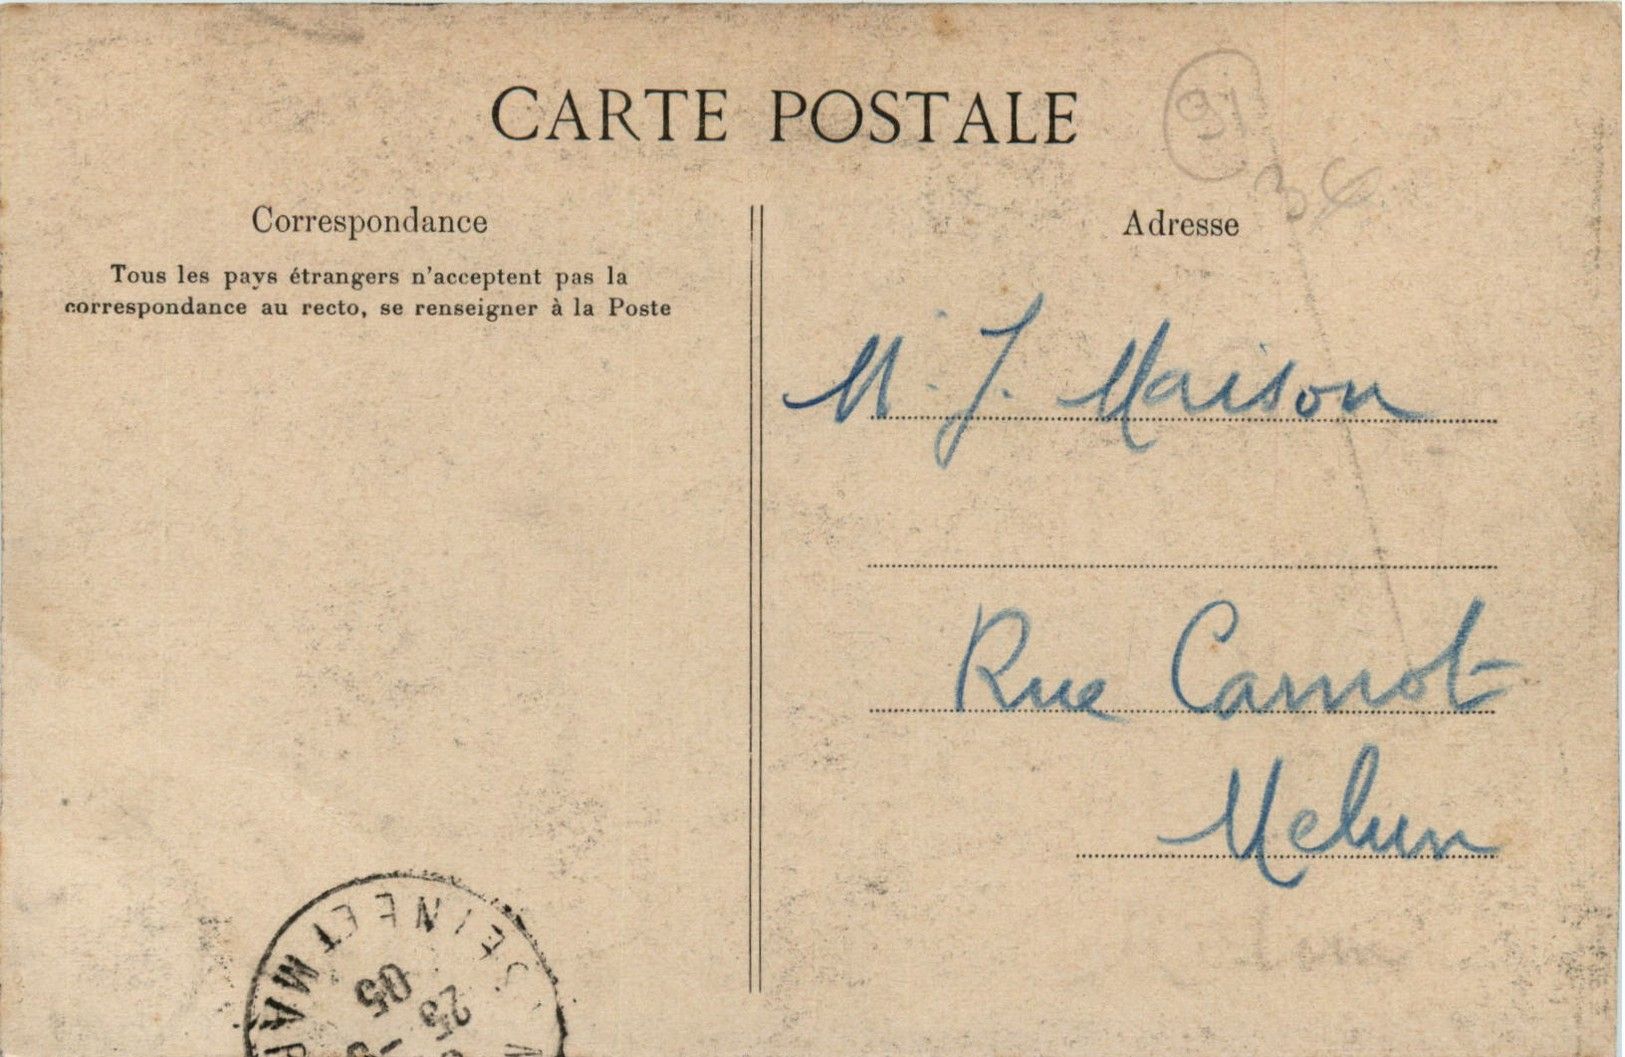 CARTE POSTALE
31
3€
Correspondance
Tous les pays étrangers n'acceptent pas la
correspondance au recto, se renseigner à la Poste
Adresse
M. J. Maison
Rue Carnot
Melun
SEINE ET MAR
05
23